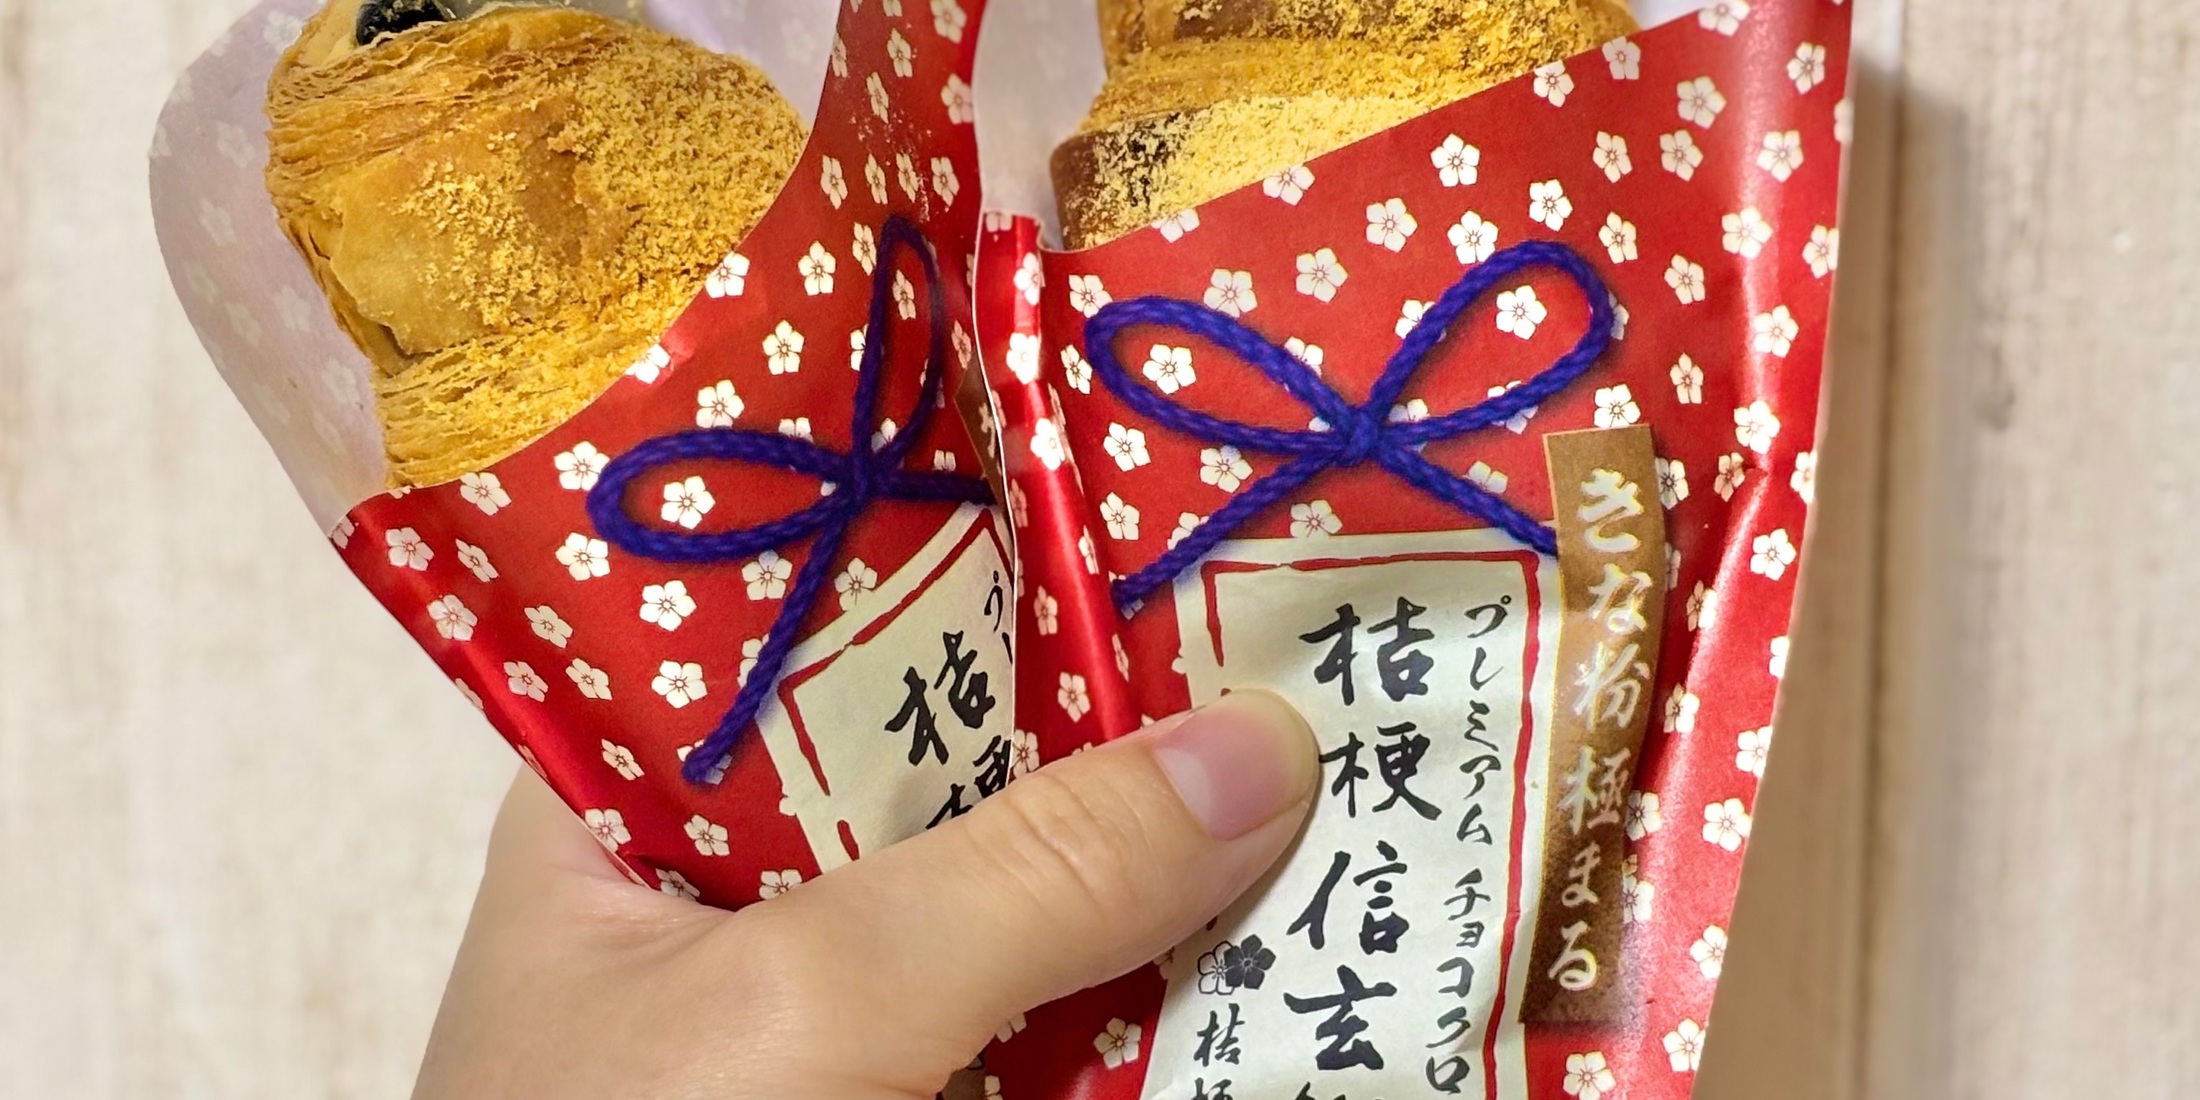 きな粉極まる
プレミアム チョコクロ
桔梗信玄
桔梗
プ
桔梗